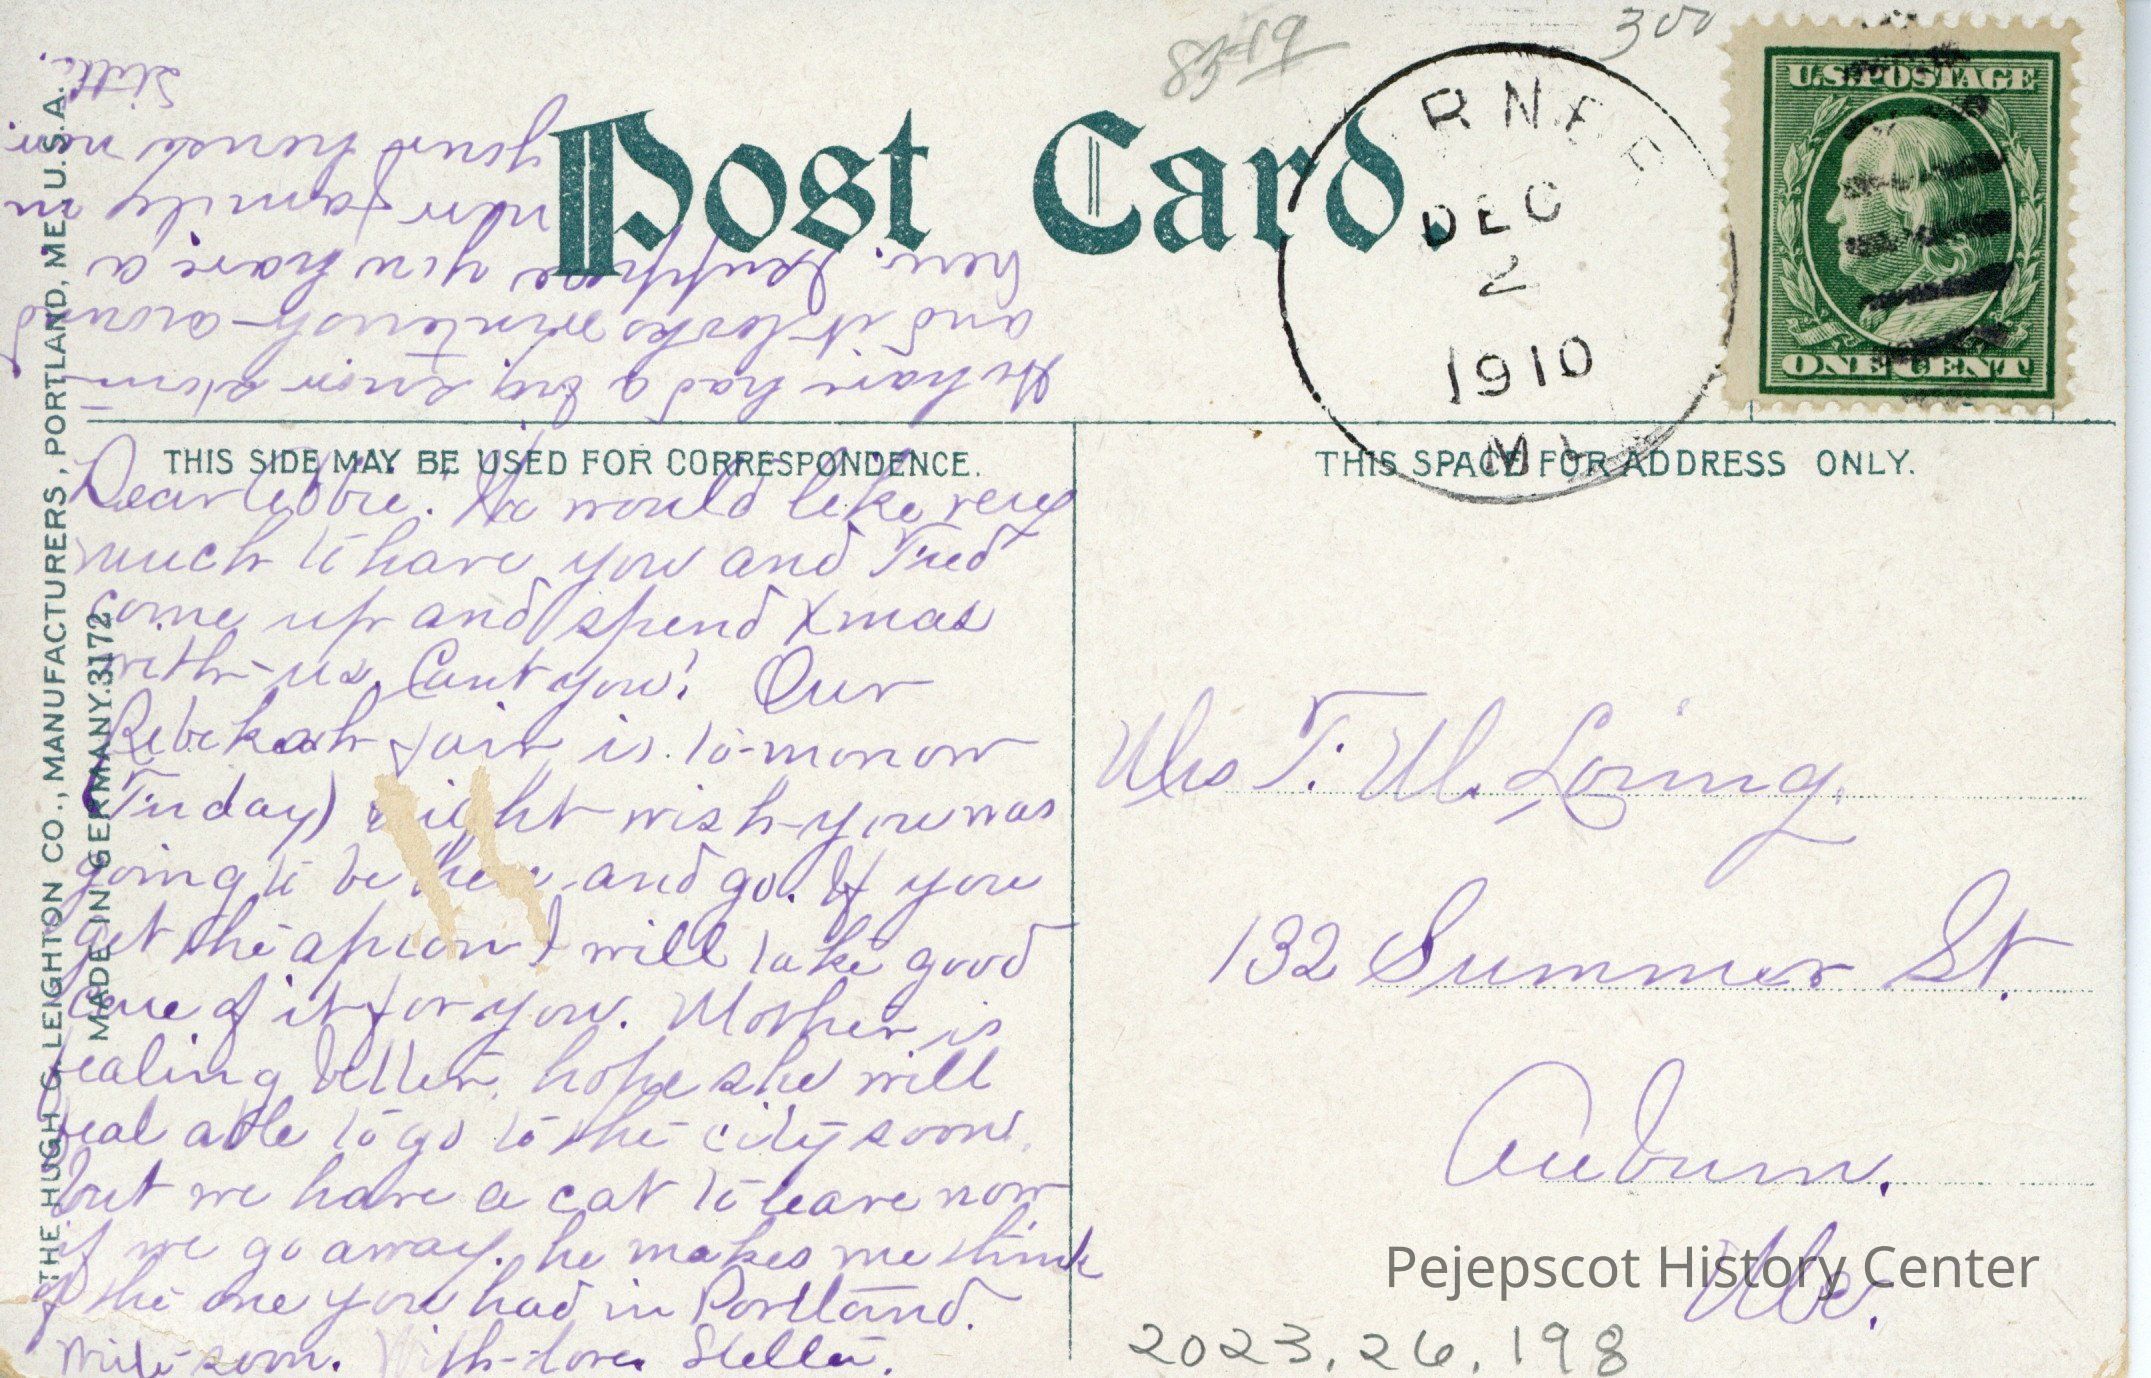 8549
300
Post Card.
U.S. POSTAGE
ONE CENT
DEC
2
1910
THIS SIDE MAY BE USED FOR CORRESPONDENCE.
THIS SPACE FOR ADDRESS ONLY.
THE HUGH C. LEIGHTON CO., MANUFACTURERS, PORTLAND, ME. U.S.A.
MADE IN GERMANY. 3172
Dear Debbie. We would like very
much to have you and Fred
come up and spend Xmas
with us. Cant you? Our
Rebekah fair is to-morrow
(Friday) night wish you was
going to be here and go. If you
get the apron I will take good
care of it for you. Mother is
fealing better, hope she will
feal able to go to the city soon,
but we have a cat to leave now
if we go away. he makes me think
of the one you had in Portland.
Write soon. With love Stella.
We have had a big snow storm
and it looks winterish around
here. Suppose you have a
new family in
your house now.
Stella.
Mrs F. W. Loring.
132 Summer St.
Auburn.
Me.
Pejepscot History Center
2023.26.198